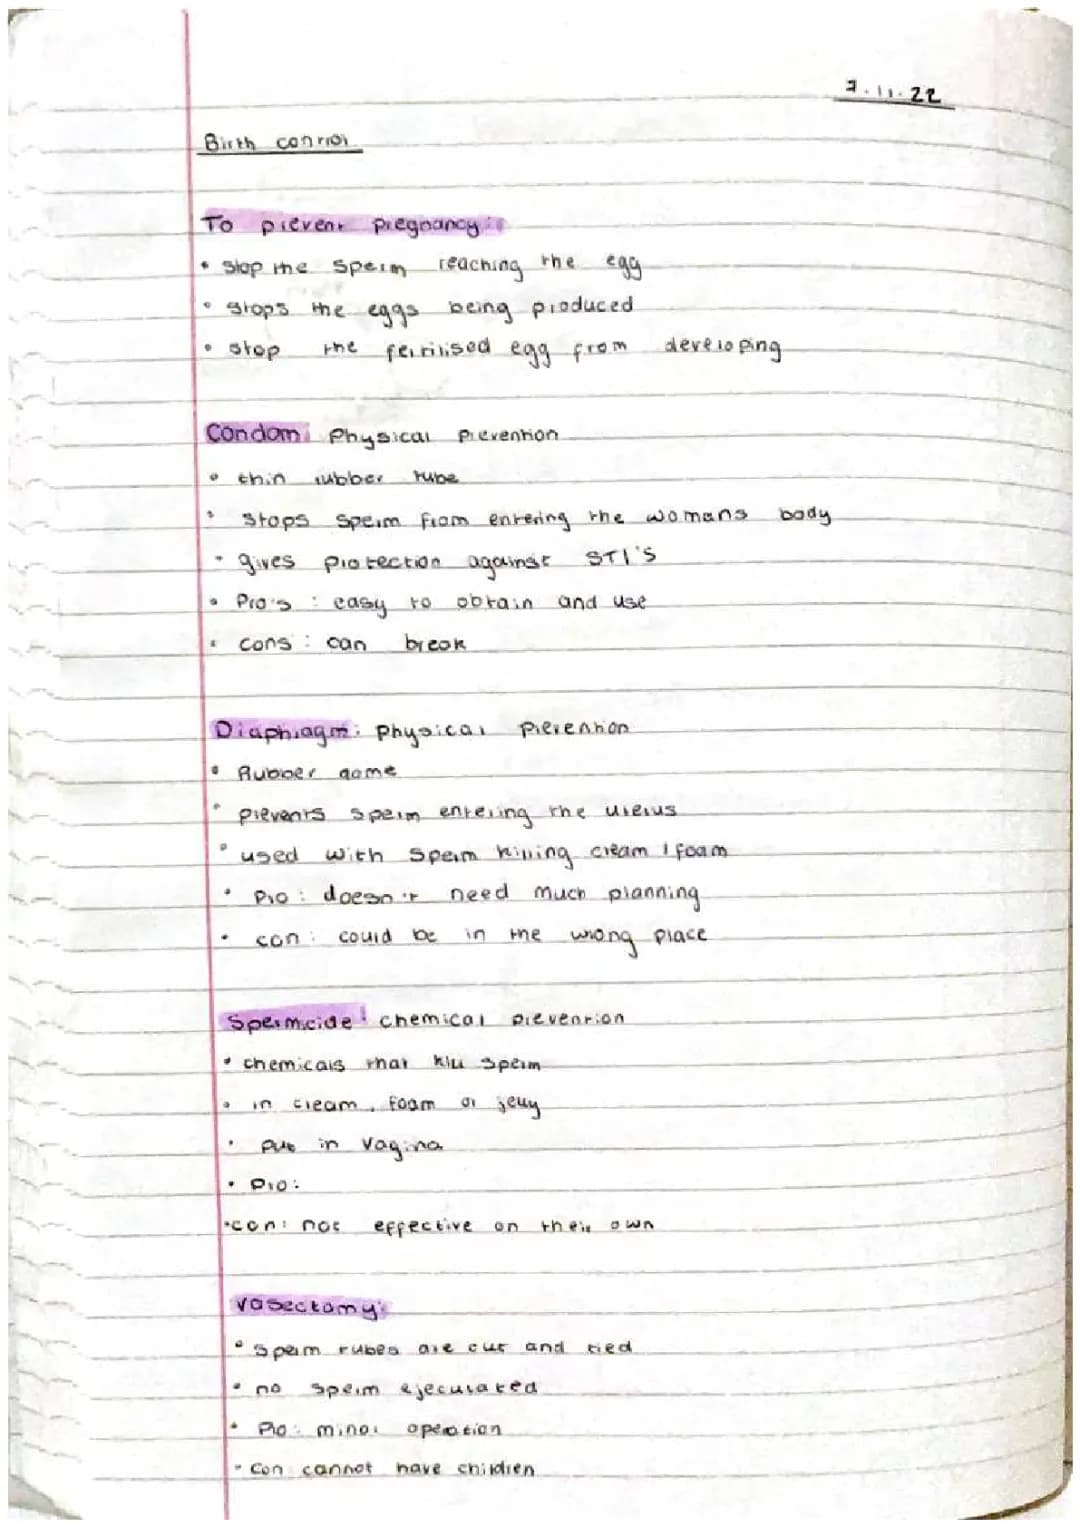 7.11.22
Birth control
To prevent pregnancy:
• stop the sperm reaching the egg
• stops the eggs being produced
• stop the fertilised egg from developing
Condom: Physical Prevention
• thin rubber tube
• stops sperm from entering the womans body
• gives protection against STI's
• Pro's : easy to obtain and use
• cons : can break
Diaphragm: physical Prevention
• Rubber dome
• prevents sperm entering the uterus
• used with sperm killing cream / foam
• Pro : doesn't need much planning
• con : could be in the wrong place
Spermicide: chemical prevention
• chemicals that kill sperm
• in cream, foam or jelly
• put in vagina
• Pro:
• con: not effective on their own
vasectomy:
• sperm tubes are cut and tied
• no sperm ejeculated
• Pro: minor operation
• con cannot have children